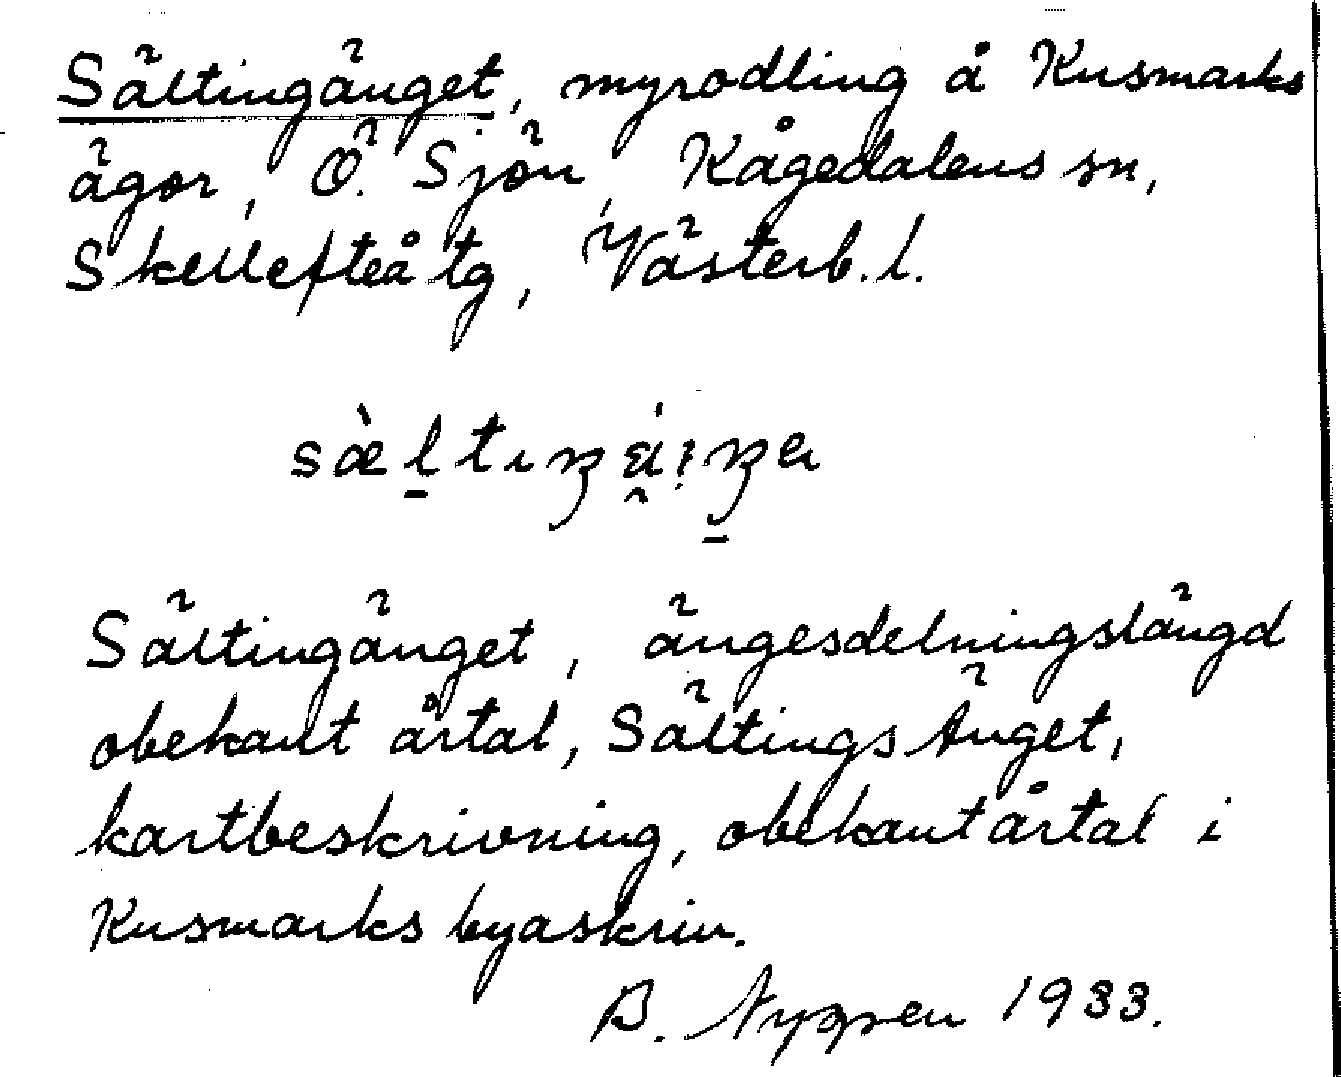 Sältingänget, myrodling å Kusmarks
ägor, Ö. Sjön, Kågedalens sn,
Skellefteå tg, Västerb. l.
Sältingänget, ängesdelningslängd
obekant årtal, Sältings Änget,
kartbeskrivning, obekant årtal i
Kusmarks byaskriv.
B. Nygren 1933.